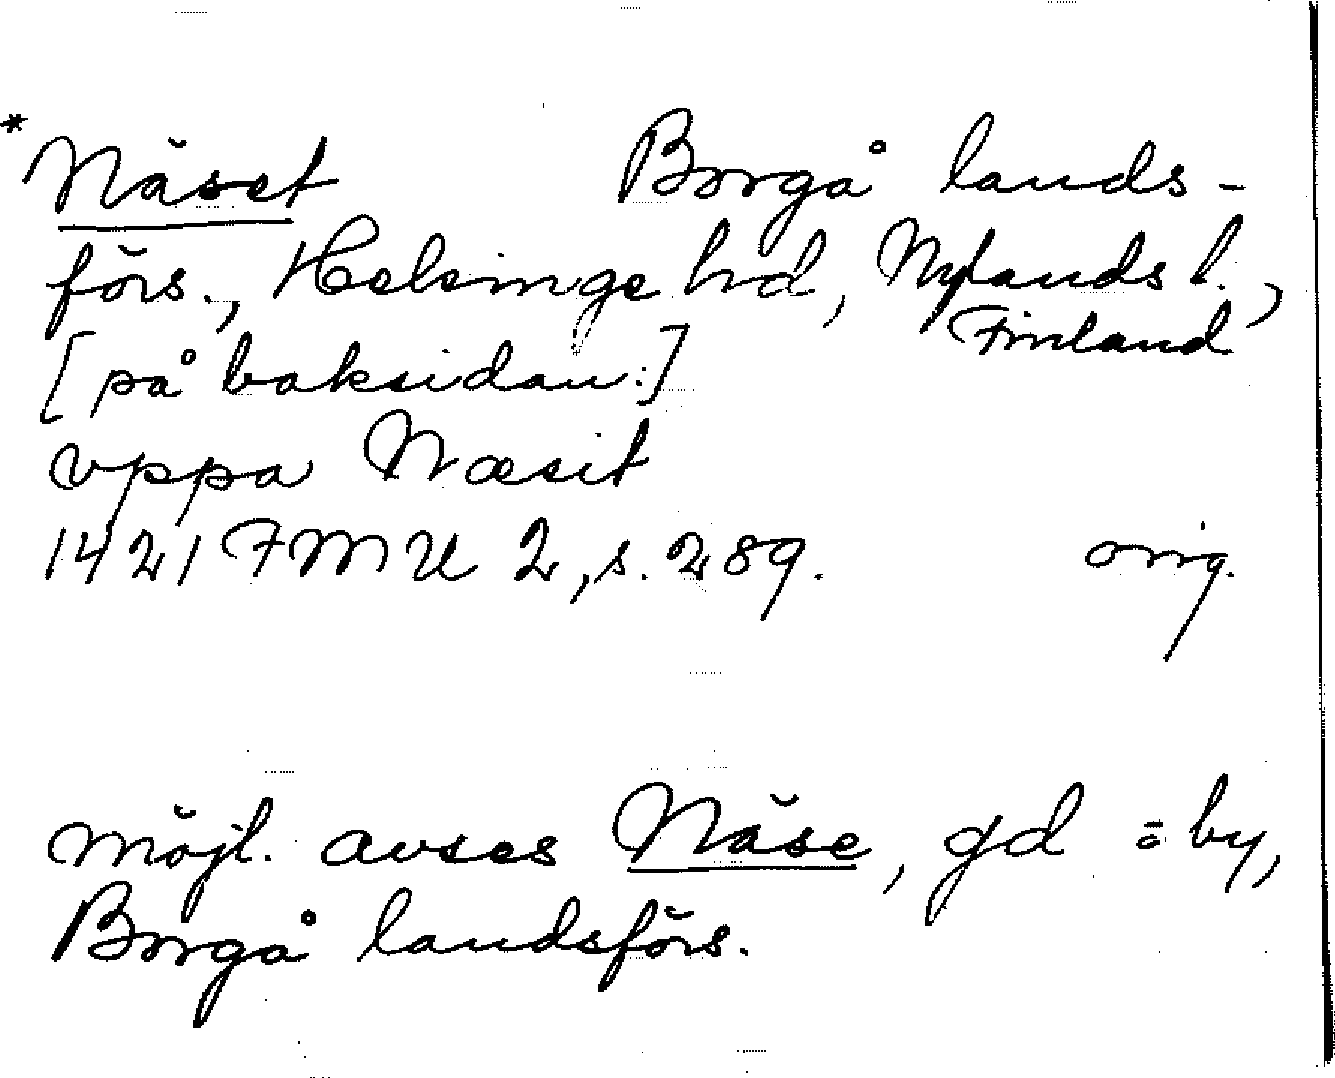 * Näset Borgå lands-
förs., Helsinge hd, Nylands l.,
Finland
[på baksidan:]
vppa Næsit
1421 FMU 2, s. 289. orig.
möjl. avses Näse, gd o by,
Borgå landsförs.